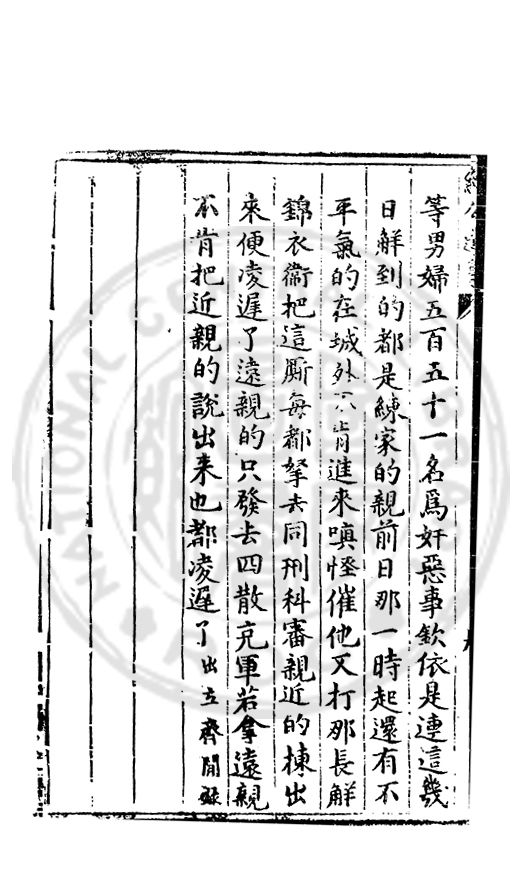 等男婦五百五十一名爲奸惡事欽依是連這幾
日解到的都是練家的親前日那一時起還有不
平氣的在城外不肯進來嗔怪催他又打那長解
錦衣衞把這厮每都拏去同刑科審親近的揀出
來便凌遲了遠親的只發去四散充軍若拿遠親
不肯把近親的說出来也都凌遲了出立齋閒錄
NATIONAL CENTRAL